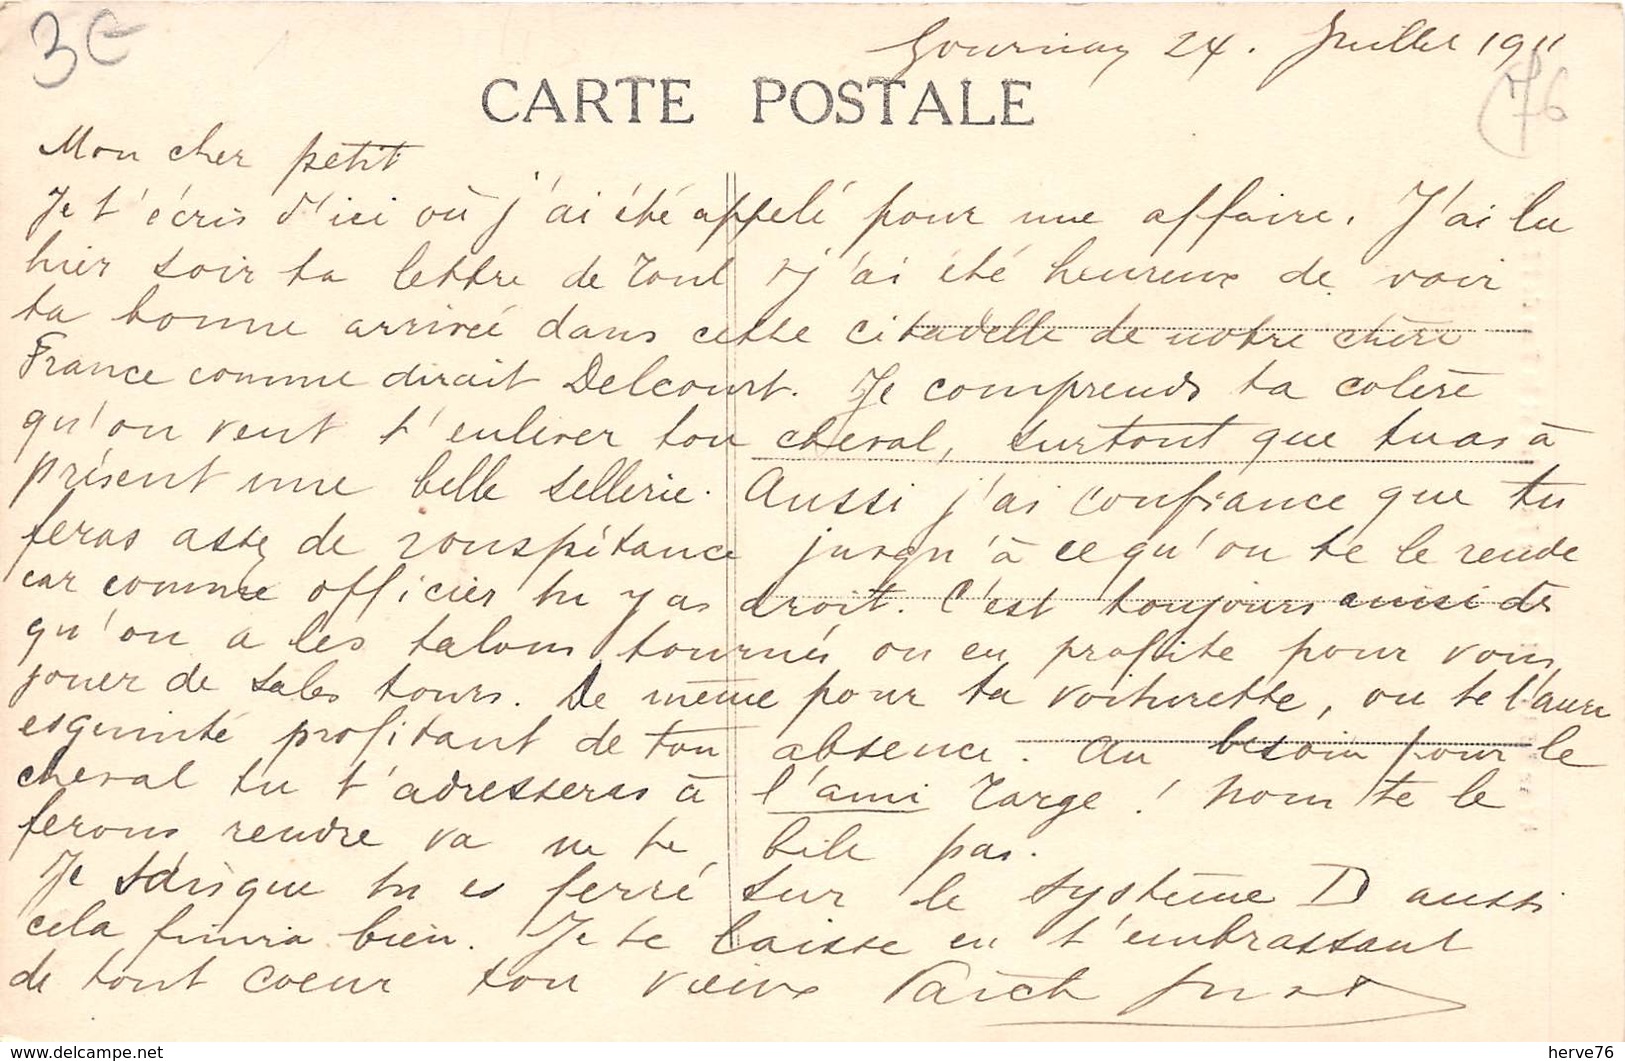 3€
Gournay 24. Juillet 1911
(76
CARTE POSTALE
Mon cher petit
Je t'écris d'ici où j'ai été appelé pour une affaire. J'ai lu
hier soir ta lettre de Toul & j'ai été heureux de voir
ta bonne arrivée dans cette citadelle de notre chère
France comme dirait Delcourt. Je comprends ta colère
qu'on veut t'enlever ton cheval, surtout que tu as à
présent une belle sellerie. Aussi j'ai confiance que tu
feras assez de rouspétance jusqu'à ce qu'on te le rende
car comme officier tu y as droit. C'est toujours ainsi dès
qu'on a les talons tournés on en profite pour vous
jouer de sales tours. De même pour ta voiturette, on te l'aura
esquinté profitant de ton absence. Au besoin pour le
cheval tu t'adresseras à l'ami Targe ! Nous te le
ferons rendre va ne te bile pas.
Je sais que tu es ferré sur le système D aussi
cela finira bien. Je te laisse en t'embrassant
de tout coeur ton vieux
herve76